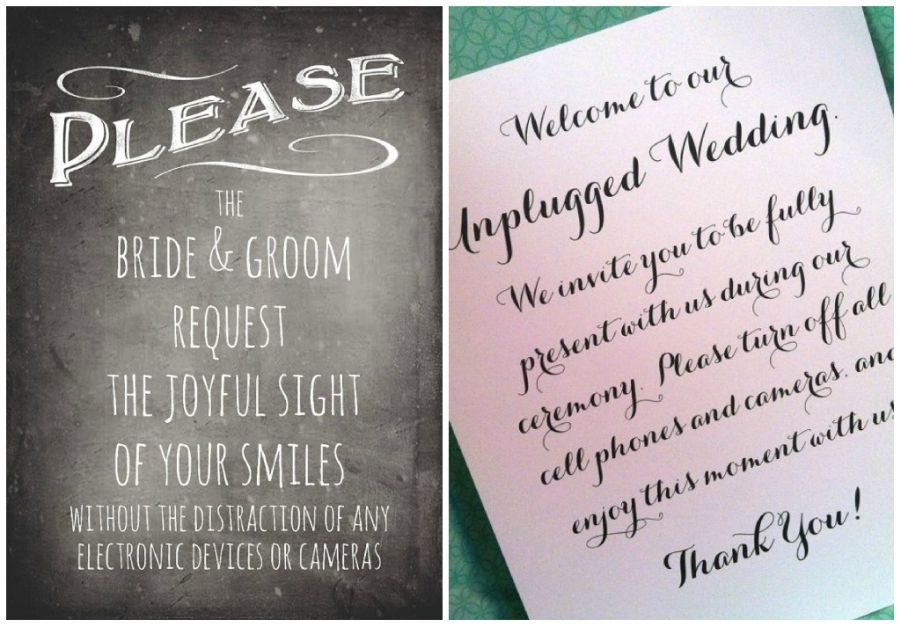 PLEASE
THE
BRIDE & GROOM
REQUEST
THE JOYFUL SIGHT
OF YOUR SMILES
WITHOUT THE DISTRACTION OF ANY
ELECTRONIC DEVICES OR CAMERAS
Welcome to our
Unplugged Wedding.
We invite you to be fully
present with us during our
ceremony. Please turn off all
cell phones and cameras, and
enjoy this moment with us.
Thank You!